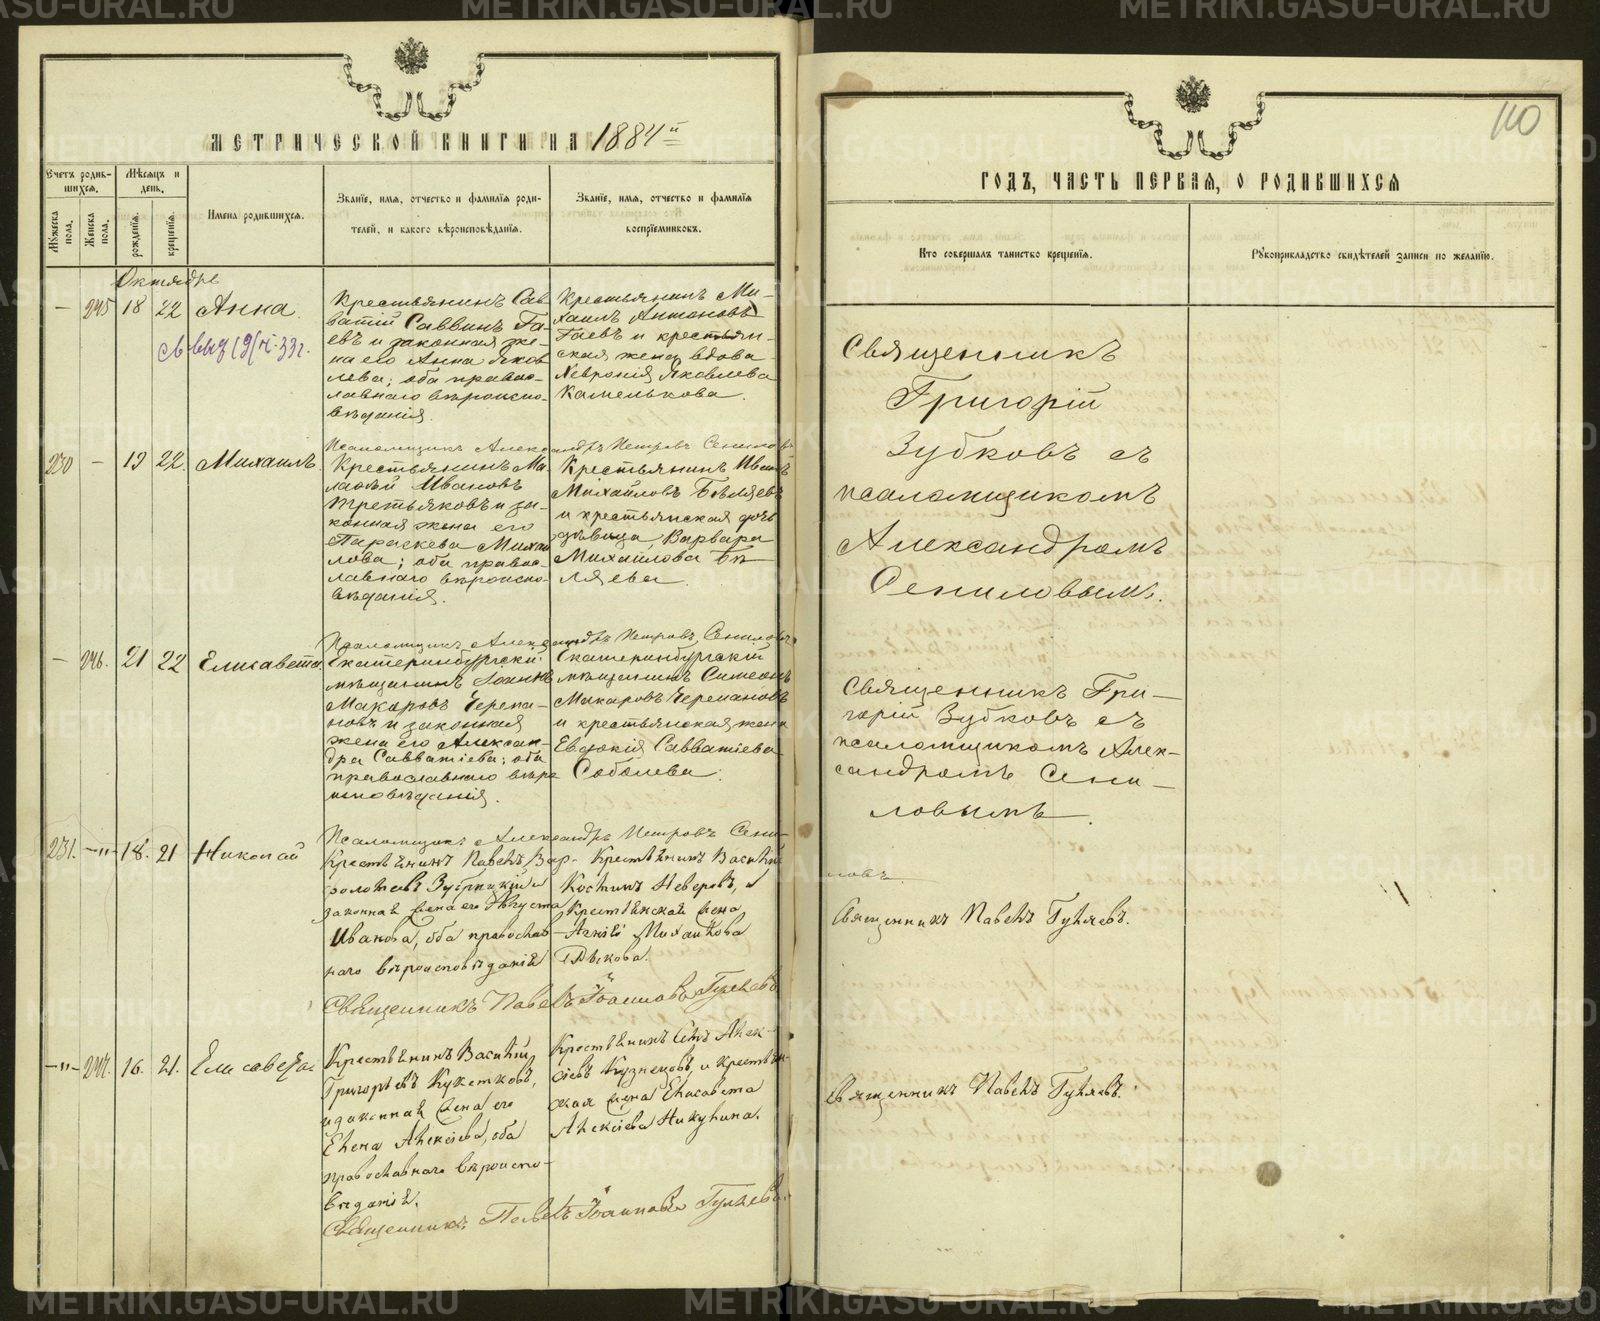 МЕТРИЧЕСКОЙ КНИГИ НА 1884й
Счетъ родив-
шихся.
Мѣсяцъ и
день.
Мужеска
пола.
Женска
пола.
рожденія.
крещенія.
Имена родившихся.
Званіе, имя, отчество и фамилія роди-
телей, и какого вѣроисповѣданія.
Званіе, имя, отчество и фамилія
воспріемниковъ.
Октябрь
— 245 18 22 Анна.
Крестьянинъ Сав
ватій Саввинъ Га-
евъ и законная же-
на его Анна Яков
лева; оба право-
славнаго вѣроиспо-
вѣданія.
Крестьянинъ Ми-
хаилъ Антоновъ
Гаевъ и крестьян-
ская жена вдова
Хевронія Яковлева
Камелькова.
Псаломщикъ Александръ Петровъ Сениловъ
230 — 19 22. Михаилъ.
Крестьянинъ Ма-
лафій Ивановъ
Третьяковъ и за-
конная жена его
Параскева Михаи
лова; оба право-
славнаго вѣроиспо-
вѣданія.
Крестьянинъ Иванъ
Михайловъ Бѣляевъ
и крестьянская дочь
дѣвица Варвара
Михайлова Бѣ-
ляева.
Псаломщикъ Александръ Петровъ Сениловъ
— 246. 21 22 Елисавета
Екатеринбургскій
мѣщанинъ Іоаннъ
Макаровъ Черепа-
новъ и законная
жена его Алексан-
дра Савватіева; оба
православнаго вѣро
исповѣданія.
Екатеринбургскій
мѣщанинъ Симеонъ
Макаровъ Черепановъ
и крестьянская жена
Евдокія Савватіева
Соболева.
Псаломщикъ Александръ Петровъ Сени-
231. —"— 18. 21 Николай
Крестьянинъ Павелъ Вар-
фоломеевъ Зубрицкій и
законная жена его Августа
Иванова, оба православ-
наго вѣроисповѣданія
Крестьянинъ Василій
Костинъ Неверовъ, и
Крестьянская жена
Михайлова
Священникъ Павелъ Іоанновъ Гуляевъ
—"— 247. 16. 21. Елисавета
Крестьянинъ Василій
Григорьевъ
и законная жена его
Елена Алексіева, оба
православнаго вѣроиспо-
вѣданія.
Крестьянинъ Алек-
сіевъ Кузнецовъ, и крестьян-
ская жена Елисавета
Алексіева Никулина.
Священникъ Павелъ Іоанновъ Гуляевъ
110
ГОДЪ, ЧАСТЬ ПЕРВАЯ, О РОДИВШИХСЯ
Кто совершалъ таинство крещенія.
Рукоприкладство свидѣтелей записи по желанію.
Священникъ
Григорій
Зубковъ съ
псаломщикомъ
Александромъ
Сениловымъ.
Священникъ Гри-
горій Зубковъ съ
псаломщикомъ Алек-
сандромъ Сени-
ловымъ.
ловъ.
Священникъ Павелъ Гуляевъ.
Священникъ Павелъ Гуляевъ.
METRIKI.GASO-URAL.RU